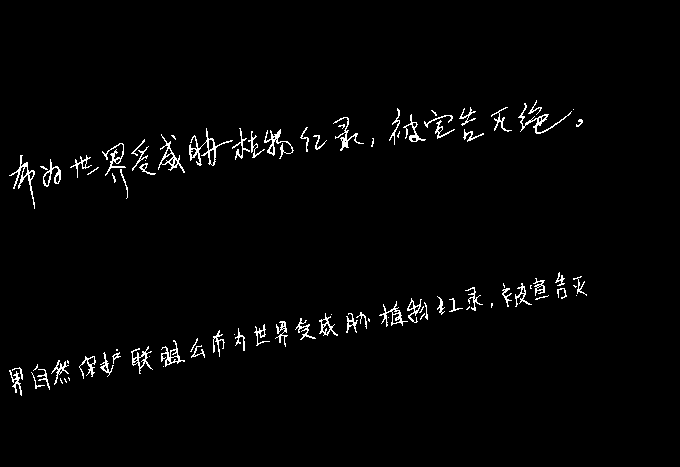 布为世界受威胁植物红录,被宣告灭绝。
界自然保护联盟公布为世界受威胁植物红录,被宣告灭